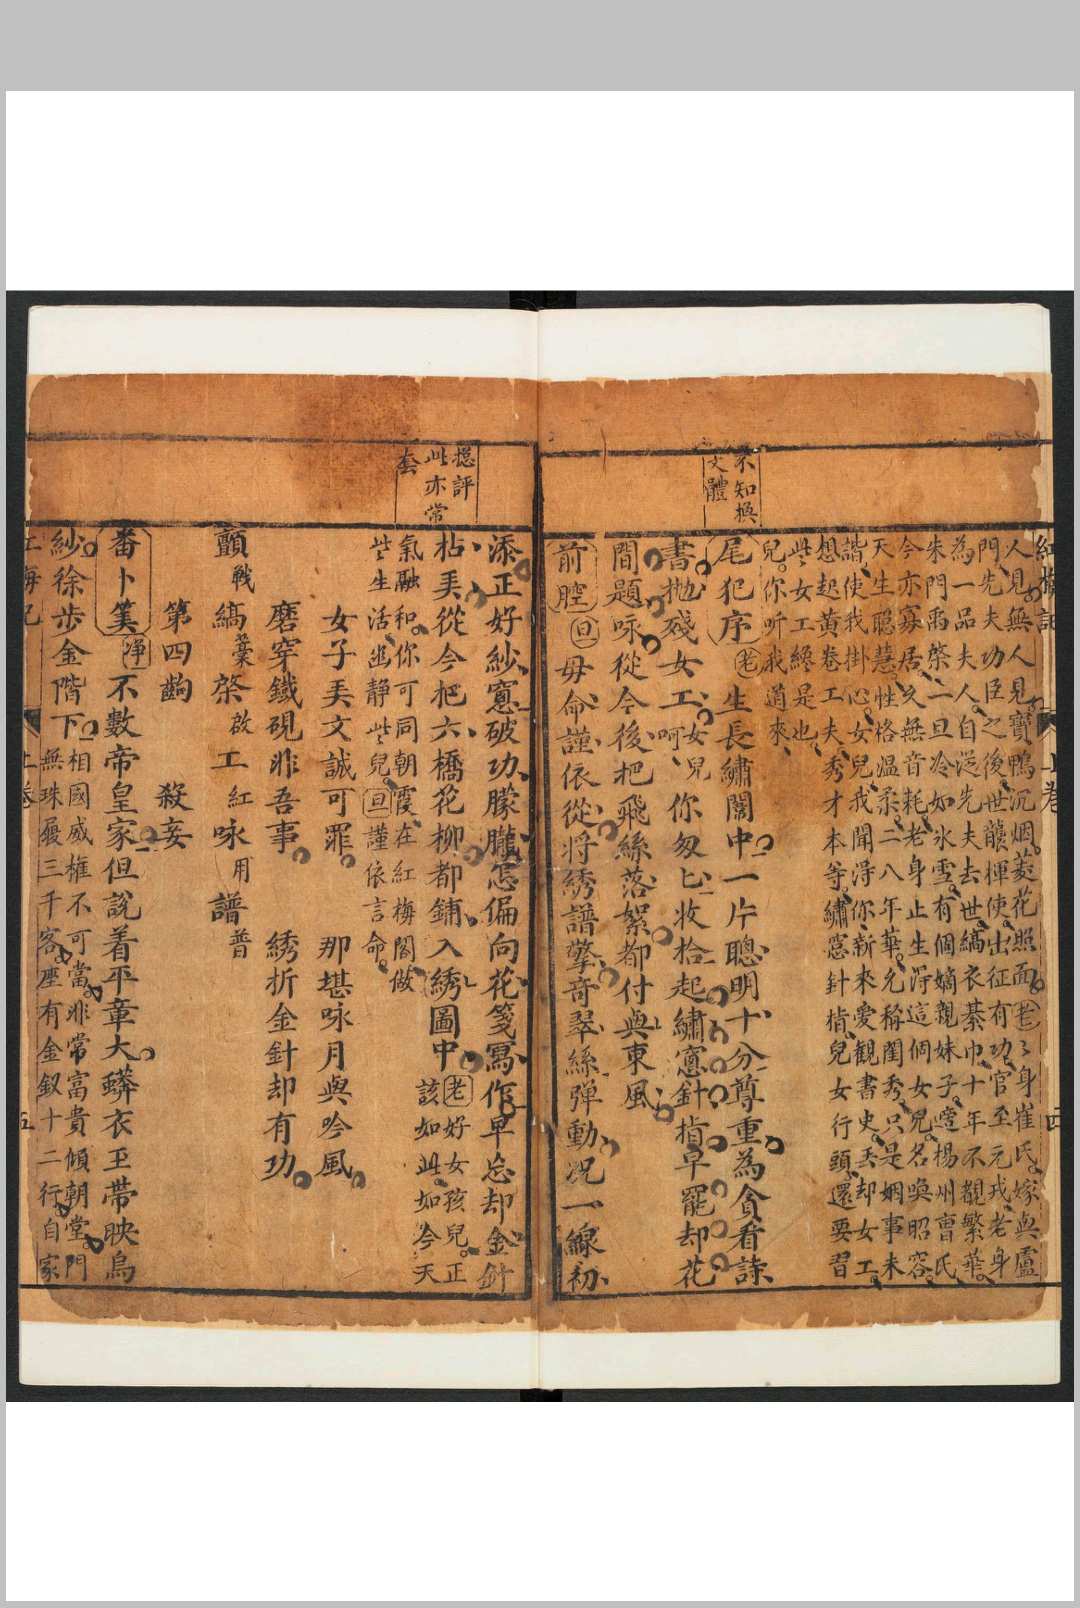 紅梅記 上卷 四
人見無人見寶鴨沉烟菱花照面老身崔氏嫁與盧
門先夫功臣之後世襲揮使出征有功官至元戎老身
為一品夫人自從先夫去世縞衣綦巾十年不覩繁華
朱門禹棨一旦冷如氷雪有個嫡親妹子適楊州曹氏
今亦寡居久無音耗老身止生淂這個女兒名喚昭容
天生聰慧性格温柔二八年華允稱閨秀只是姻事未
諧使我掛心女兒我聞淂你新來愛観書史丟却女工
想起黄卷工夫秀才本等繡窓針指兒女行頭還要習
些女工終是也
兒你听我道來
不知換
文體
尾犯序老生長繡閣中一片聰明十分尊重為貪看詩
書拋殘女工呵女兒你匆匕收拾起繡窻針指早罷却花
間題咏從今後把飛絲落絮都付與東風
前腔旦毋命謹依從將綉譜擎奇翠絲弹動况一線初
添正好紗窻破功朦朧怎偏向花箋寫作早忘却金針
拈弄從今把六橋花柳都鋪入綉圖中老好女孩兒正
該如此如今天
氣融和你可同朝霞在紅梅閣做
些生活遊静些兒旦謹依言命
揔評
此亦常
套
女子弄文誠可罪 那堪咏月與吟風
磨穿鐵硯非吾事 綉折金針却有功
顫戰 縞槀 棨啟 工紅 咏用 譜普
第四齣 殺妾
番卜筭淨不數帝皇家但説着平章大蟒衣玉带映烏
紗徐步金階下相國威權不可當非常富貴傾朝堂門
無珠履三千客座有金釵十二行自家
紅梅記 上卷 五